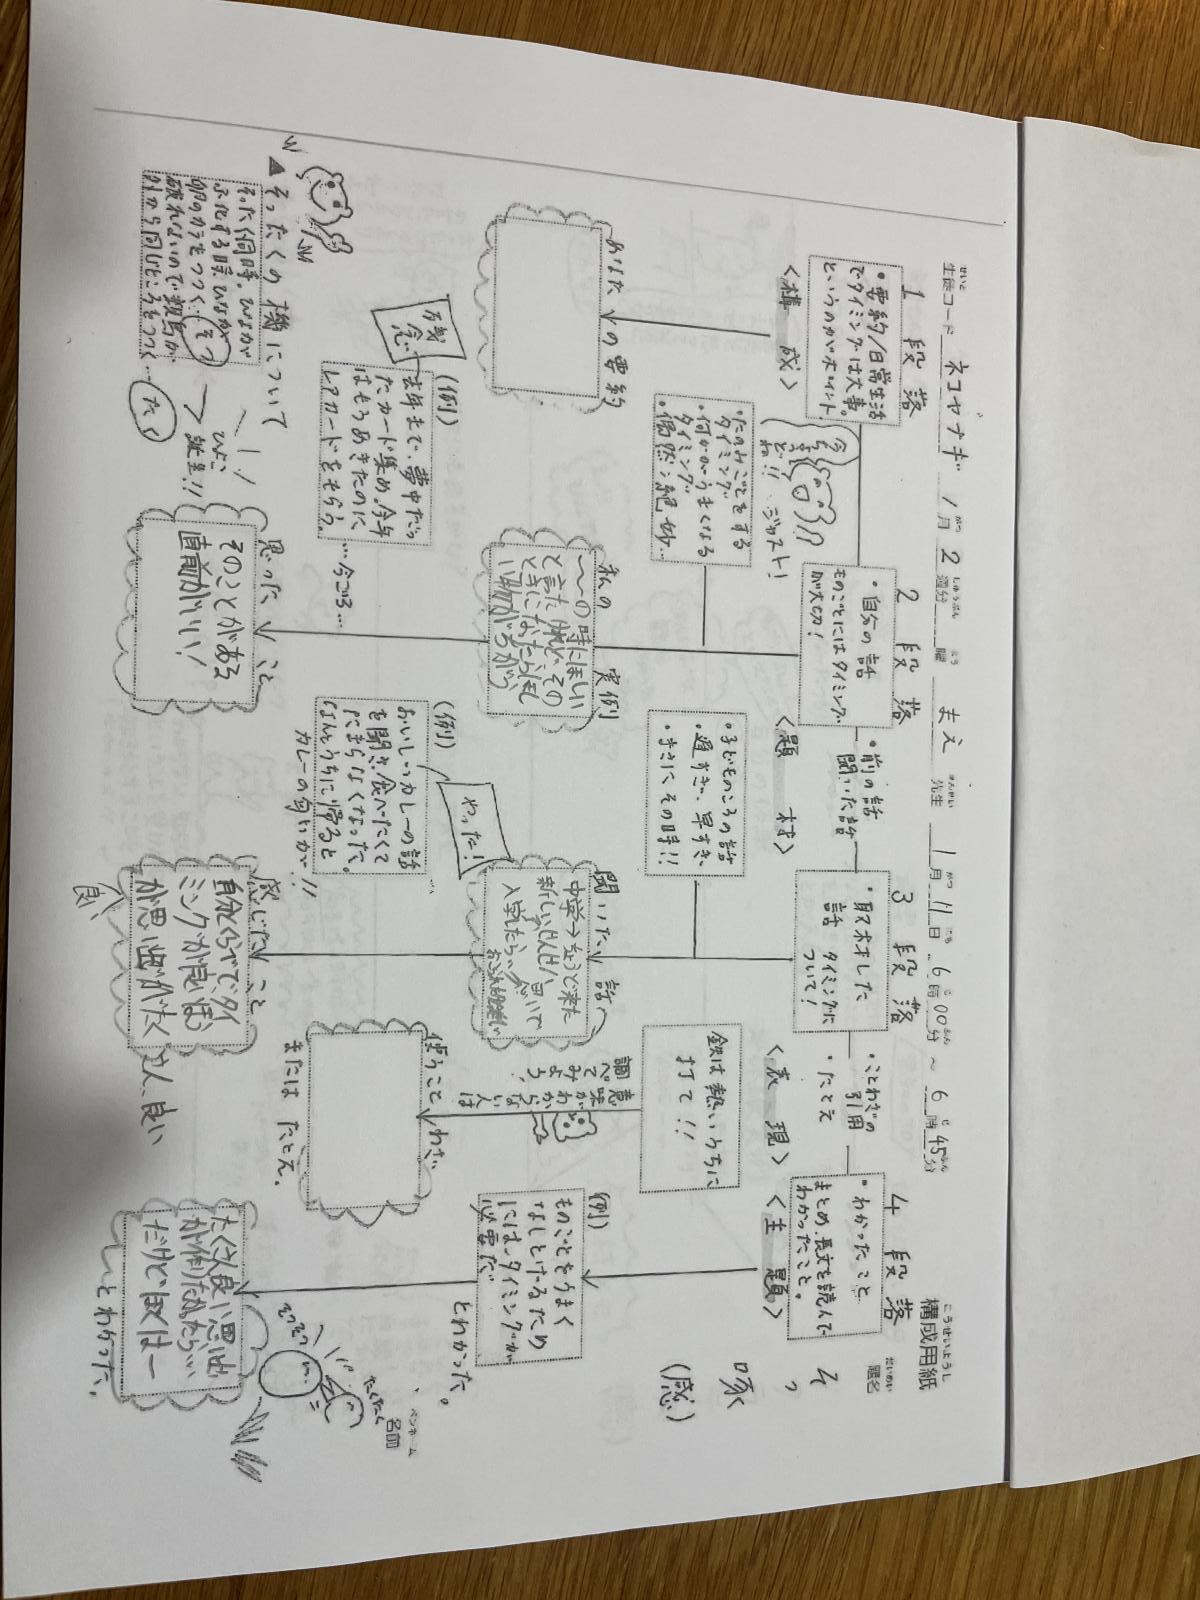 構成用紙
こうせいようし
生徒コード ネコヤナギ 1月 2週分 曜 まえ 先生 1月11日 6時00分 ~ 6時45分
題名
だいめい
そっ
啄
(感)
ペンネーム
名前
1 段落
・要約/日常生活
でタイミングは大事。
というのがポイント
2 段落
・自分の話
ものごとにはタイミング
が大切!
・前の話
聞いた話
3 段落
・取材した
話 タイミングに
ついて!
・ことわざの
引用
・たとえ
4 段落
・わかったこと
まとめ、長文を読んで
わかったこと。
<構成>
<題材>
<表現>
<主題>
ジャスト!
・たのみごとをする
タイミング
・何かがうまくなる
タイミング
・偶然、絶妙…
・子どものころの話
・遅すぎ、早すぎ、
・まさにその時!!
鉄は熱いうちに
打て!!
意味がわからない人は
調べてみよう。
の要約
私の実例
~の時にほしい
と言たけれど、その
ときになったらほし
い物がちがう
聞いた話
中学→ちょうど来た
新しいせんせい
入学したら
(例)
ものごとをうまく
なしとげるたり
にはタイミングが
必要だ
とわかった。
残念
(例)
去年まで、夢中だっ
たカード集め。今年
はもうあきたのに
レアカードをもらう。
…今ごろ…
やった!
(例)
おいしいカレーの話
を聞き、食べたくて
たまらなくなった。
なんとうちに帰ると
カレーの匂いが!!
使うことわざ
または たとえ。
▲そったくの機について
そったく同時。ひなが
ふ化する時、ひなが
卵のカラをつつく。そつ
破れないので親鳥が
外から同じところをつつく…たく
ひよこ
誕生!!
思ったこと
そのことがある
直前がいい!
感じたこと
自分くらべでタイ
ミングが良いほう
が思い出がたく
さん、良い
良い
たくさん良い思い出
が作りたかったら…
だけどぼくは一
いとわかった。
そつそつ
たくたく